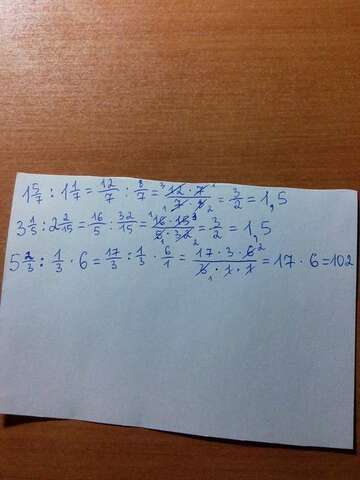 1 5/7 : 1 1/7 = 12/7 : 8/7 = 12 · 7 / 7 · 8 = 3/2 = 1,5
3 1/5 : 2 2/15 = 16/5 : 32/15 = 16 · 15 / 5 · 32 = 3/2 = 1,5
5 2/3 : 1/3 · 6 = 17/3 : 1/3 · 6/1 = 17 · 3 · 6 / 3 · 1 · 1 = 17 · 6 = 102